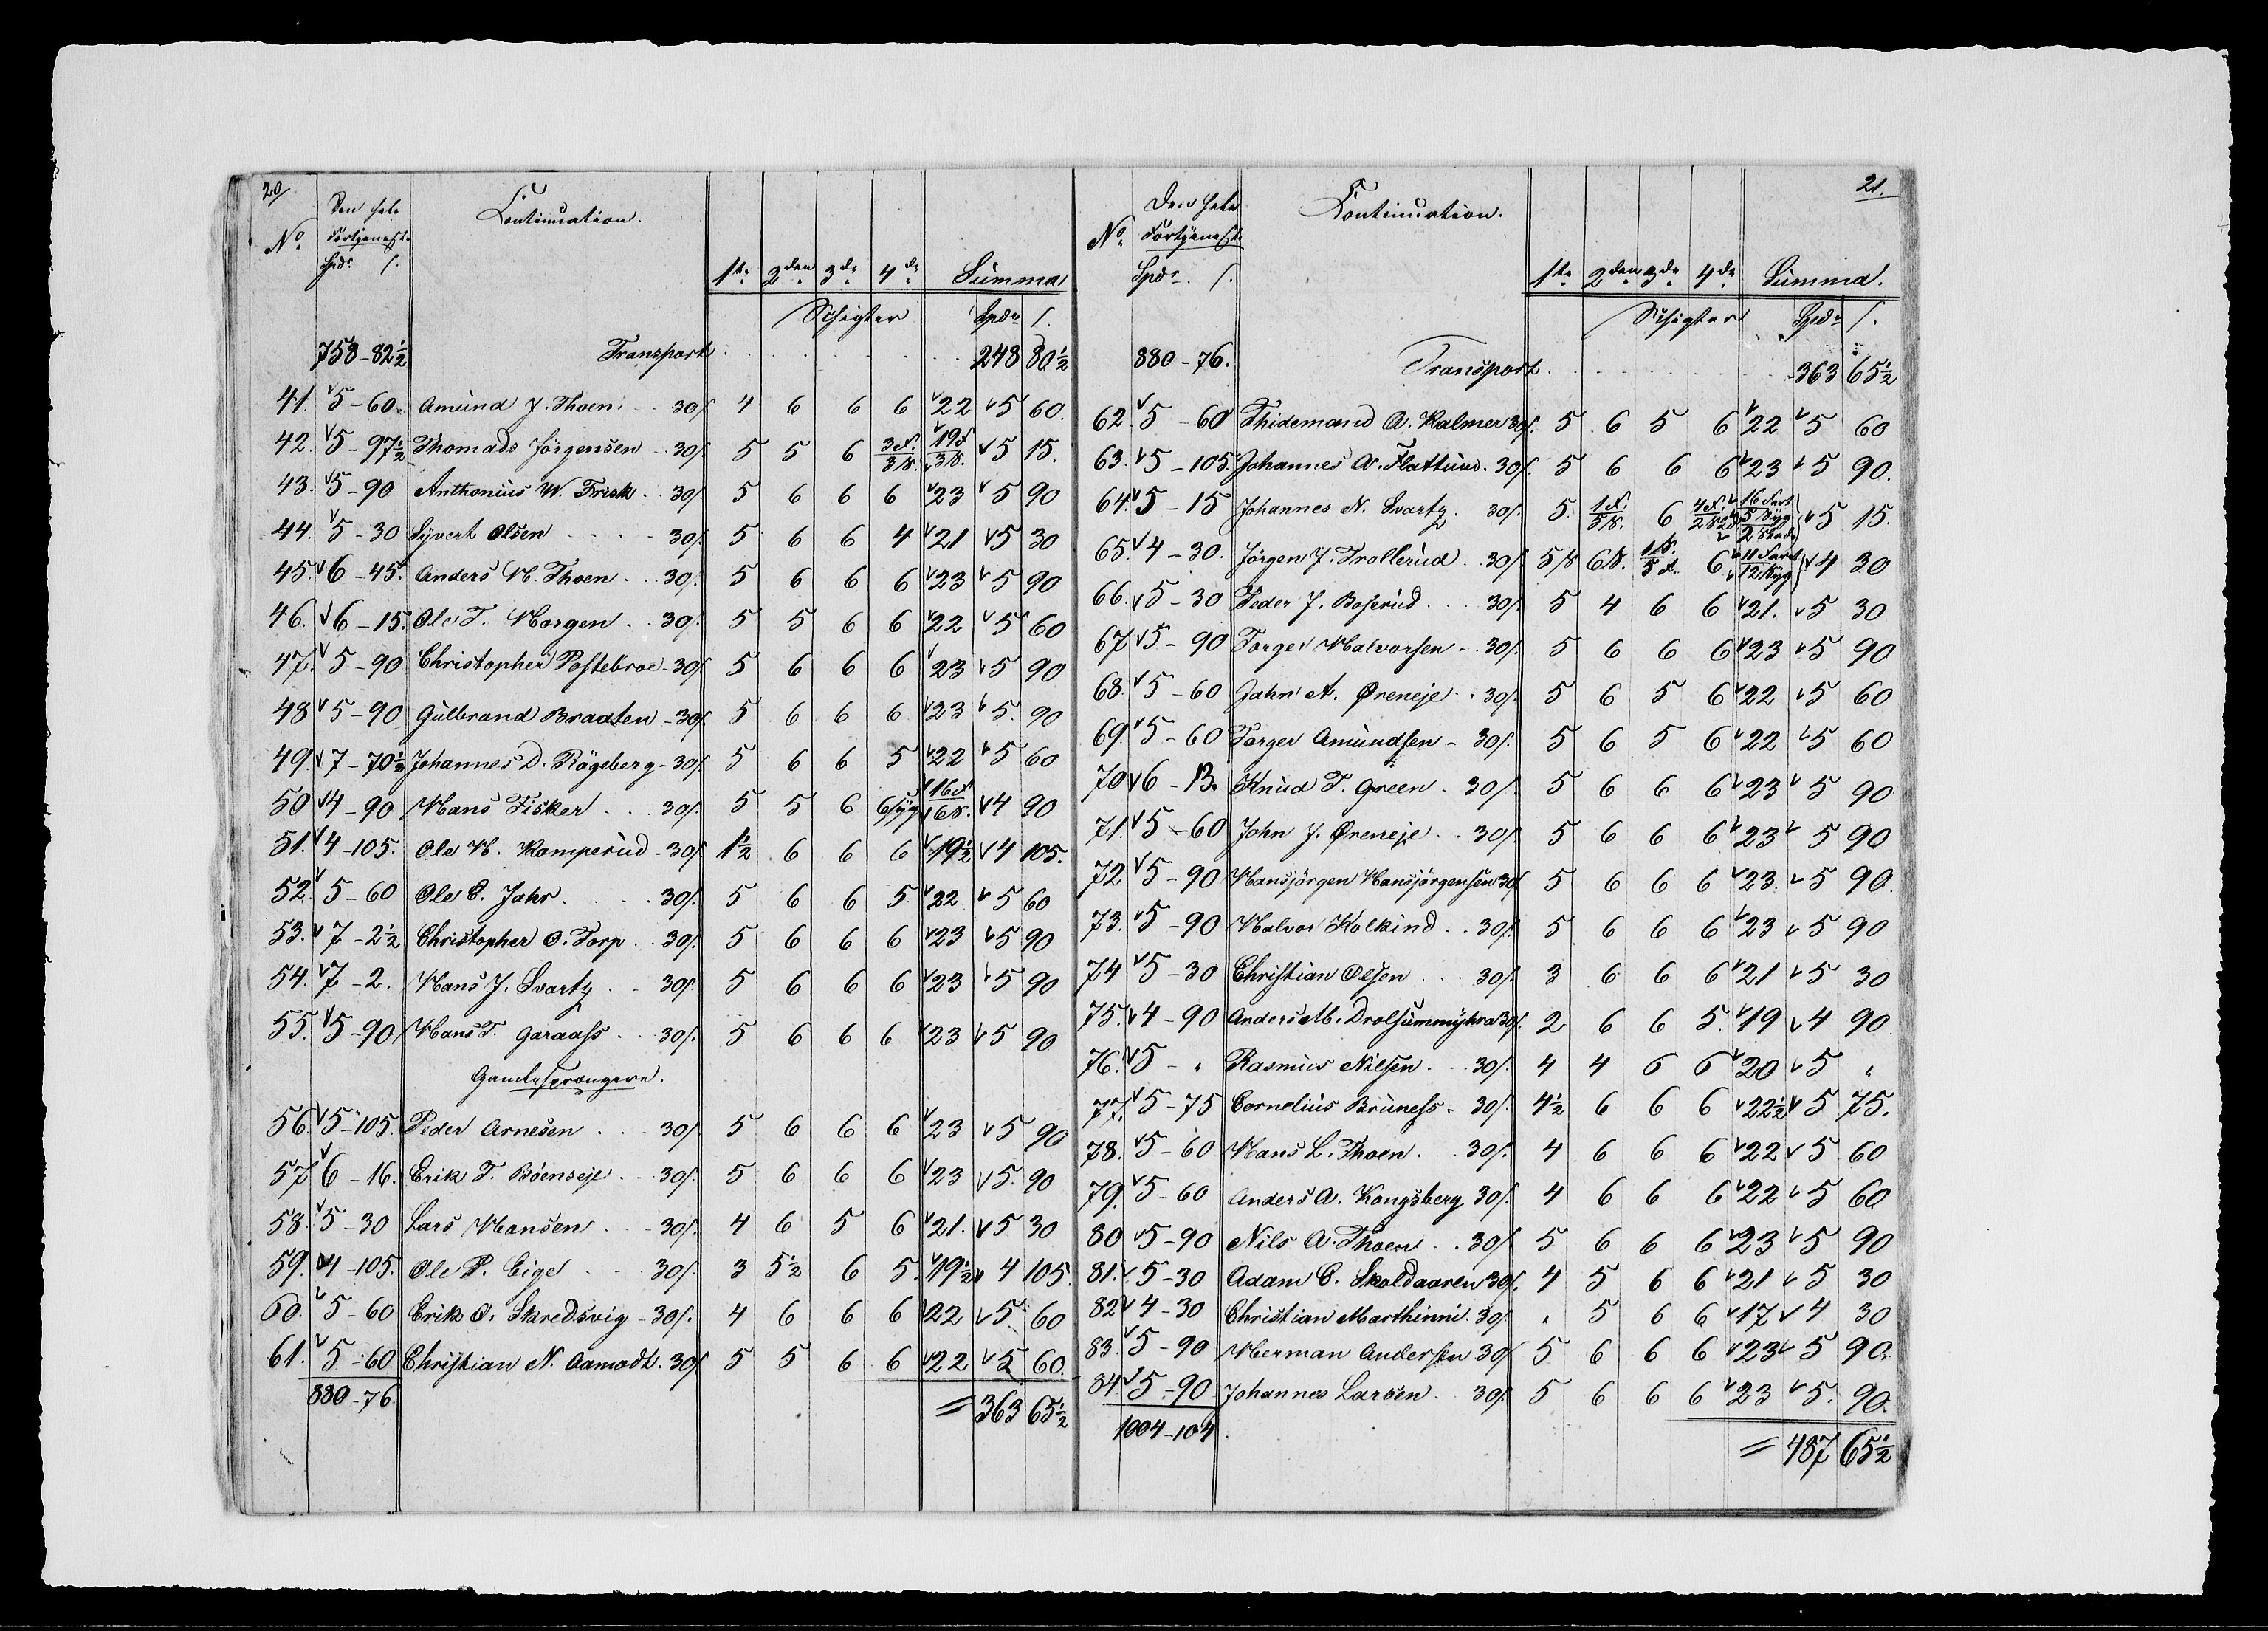 20/
Den hele
Fortjeneste
No.
Spdr. s.
Continuation.
1te 2den 3de 4de Summa
Schigter Spdr s.
758-82½ Transport 248 80½
41. 5-60. Amund J. Thoen. 30s. 4 6 6 6 22 5 60.
42. 5-97½ Thomads Jörgensen 30s. 5 5 6 3F./3S. 19F/3S. 5 15.
43. 5-90 Anthonius W. Frisk 30s. 5 6 6 6 23 5 90
44. 5-30 Syvert Olsen 30s. 5 6 6 4 21 5 30
45. 6-45. Anders H. Thoen 30s. 5 6 6 6 23 5 90
46. 6-15. Ole T. Horgen 30s. 5 5 6 6 22 5 60
47. 5-90 Christopher Postebroe 30s. 5 6 6 6 23 5 90
48 5-90 Gulbrand Braaten 30s. 5 6 6 6 23 5. 90
49. 7-70½ Johannes D. Rögeberg 30s. 5 6 6 5 22 5 60
50 4-90 Hans Fisker 30s. 5 5 6 6syg 16F/6S. 4 90
51. 4-105. Ole H. Komperud 30s. 1½ 6 6 6 19½ 4 105.
52. 5-60 Ole C. Jahr 30s. 5 6 6 5 22 5 60
53. 7-2½ Christopher O. Torp 30s. 5 6 6 6 23 5 90
54. 7-2. Hans J. Svartz 30s. 5 6 6 6 23 5 90
55. 5-90 Hans T. Garaass 30s. 5 6 6 6 23 5 90
Gamlesprængere.
56. 5-105. Peder Arnesen 30s. 5 6 6 6 23 5 90
57 6-16. Erik T. Böenseje 30s. 5 6 6 6 23 5. 90
58. 5-30 Lars Hansen 30s. 4 6 5 6 21. 5 30
59. 4-105. Ole P. Eige 30s. 3 5½ 6 5. 19½ 4 105.
60. 5-60 Erik O. Skredsvig 30s. 4 6 6 6 22 5. 60
61. 5-60 Christian N. Aamodt. 30s. 5 5 6 6 22 5 60.
880-76. = 363 65½
21.
Den hele
Fortjeneste
No.
Spdr. s.
Continuation.
1te 2den 3de 4de Summa.
Schigter Spdr s.
880-76. Transport 363 65½
62. 5-60 Thidemand A. Kalmer 30s. 5 6 5 6 22 5 60
63. 5-105. Johannes A. Flattum. 30s. 5 6 6 6 23 5 90.
64. 5-15 Johannes N. Svartz. 30s. 5. 1F./5S. 6 4F./2S. 16 Fart 5 Syg 5 15.
65. 4-30. Jörgen J. Trollerud 30s. 5S 6S. 1S./5F. 6 11 Fart 12 Syg 4 30
66. 5-30 Peder J. Boserud 30s. 5 4 6 6 21. 5 30
67 5-90 Torger Halvorsen 30s. 5 6 6 6 23 5 90
68. 5-60 Jahn A. Øreneje 30s. 5 6 5 6 22 5 60
69. 5-60 Torger Amundsen 30s. 5 6 5 6 22 5 60
70 6-13. Knud T. Green 30s. 5 6 6 6 23 5 90
71. 5-60 John J. Øreneje 30s. 5 6 6 6 23 5 90
72 5-90 Hansjörgen Hansjörgensen 30s 5 6 6 6 23. 5 90.
73. 5-90 Halvor Kolkind 30s. 5 6 6 6 23 5 90
74 5-30 Christian Olsen 30s. 3 6 6 6 21 5 30
75. 4-90 Anders M. Drolsummyhra 30s. 2 6 6 5. 19 4 90
76. 5-" Rasmus Nilsen 30s. 4 4 6 6 20 5 "
77. 5-75 Cornelius Bruness 30s. 4½ 6 6 6 22½ 5 75.
78. 5-60 Hans L. Thoen 30s. 4 6 6 6 22 5 60
79. 5-60 Anders A. Kongsberg 30s. 4 6 6 6 22 5 60
80 5-90 Nils A. Thoen 30s. 5 6 6 6 23 5 90
81. 5-30 Adam C. Skoldaaren 30s. 4 5 6 6 21 5 30
82 4-30 Christian Marthinni. 30s. " 5 6 6 17 4 30
83. 5-90 Herman Andersen 30s 5 6 6 6 23 5 90.
84 5-90 Johannes Larsen 30s. 5 6 6 6 23 5. 90.
1004-104 = 487 65½